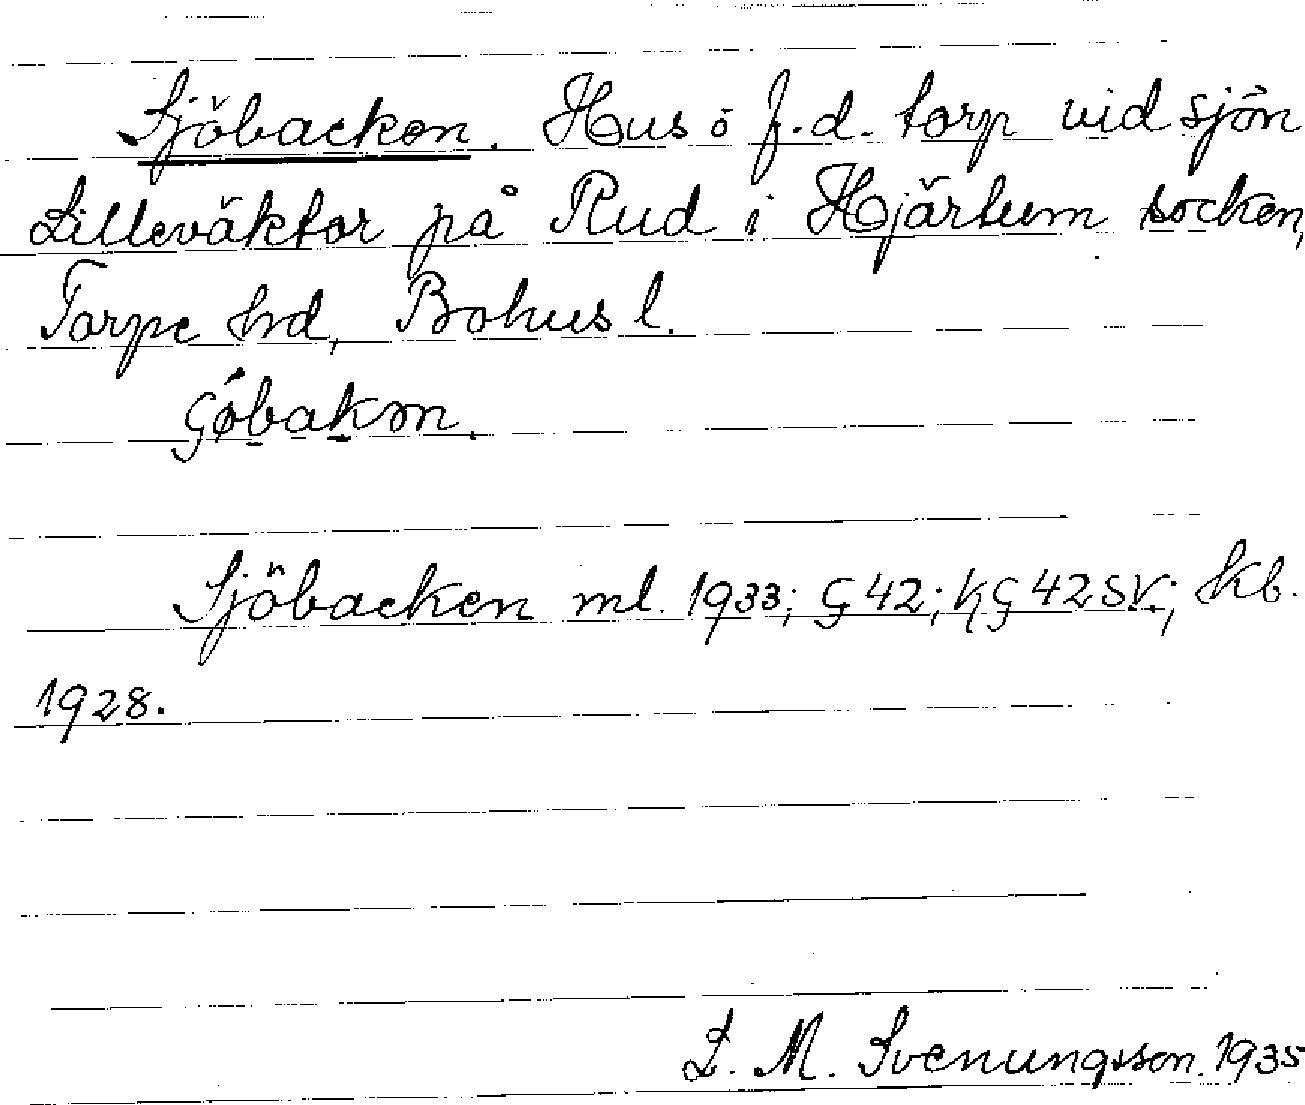 Sjöbacken. Hus o f.d. torp vid sjön
Lilleväktor på Rud i Hjärtum socken,
Torpe hrd, Bohus l.
Sjöbacken ml. 1933; Ç 42; kÇ 42 SV.; Kb.
1928.
L. M. Svenungsson. 1935